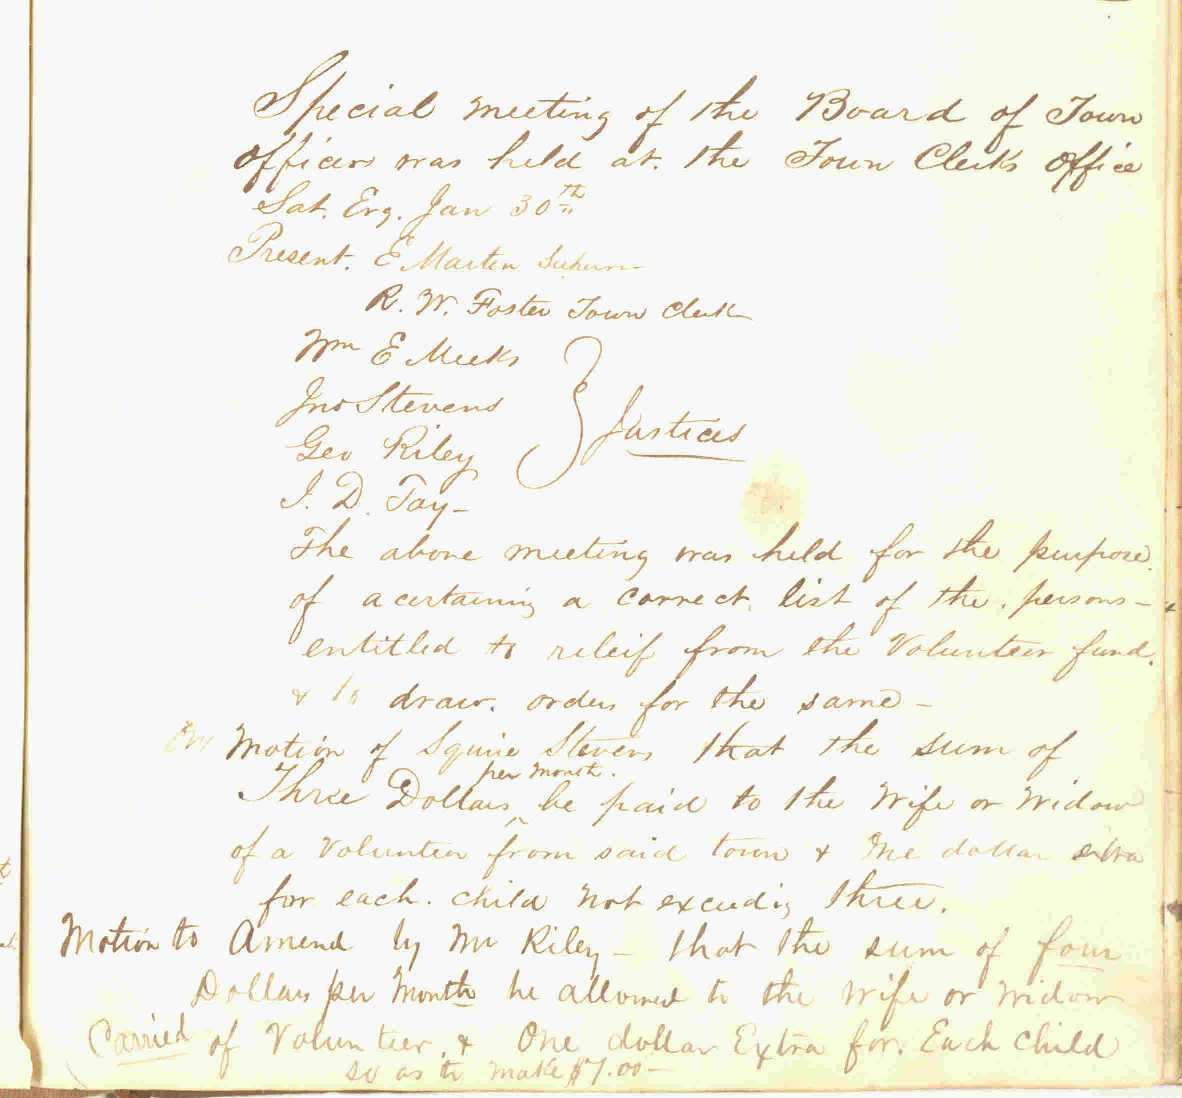 Special meeting of the Board of Town
officers was held at. the Town Clerks office
Sat. Evg. Jan 30th
Present. E Marten Superv
R. W. Foster Town Clerk
Wm E Meeks
Jno Stevens
Justices
Geo Riley
I. D. Tay-
The above meeting was held for the purpose.
of acertaining a correct list of the persons-
entitled to releif from the Volunteer fund.
& to draw. orders for the same-
On Motion of Squire Stevens that the sum of
per month.
Three Dollars ^ be paid to the Wife or Widow
of a Volunteer from said town & One dollar extra
for each. child not exceeding three.
Motion to Amend by Mr Riley- that the sum of four
Dollars per Month be allowed to the Wife or Widow
Carried of Volunteer, & One dollar Extra for. Each Child
so as to make $7.00-